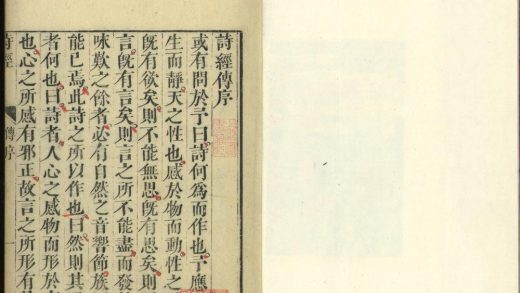 詩經傳序
或有問於予曰詩何為而作也予應
生而靜天之性也感於物而動性之
既有欲矣則不能無思既有思矣則
言既有言矣則言之所不能盡而發
咏歎之餘者必有自然之音響節族
能已焉此詩之所以作也曰然則其
者何也曰詩者人心之感物而形於
也心之所感有邪正故言之所形有
詩經 傳序